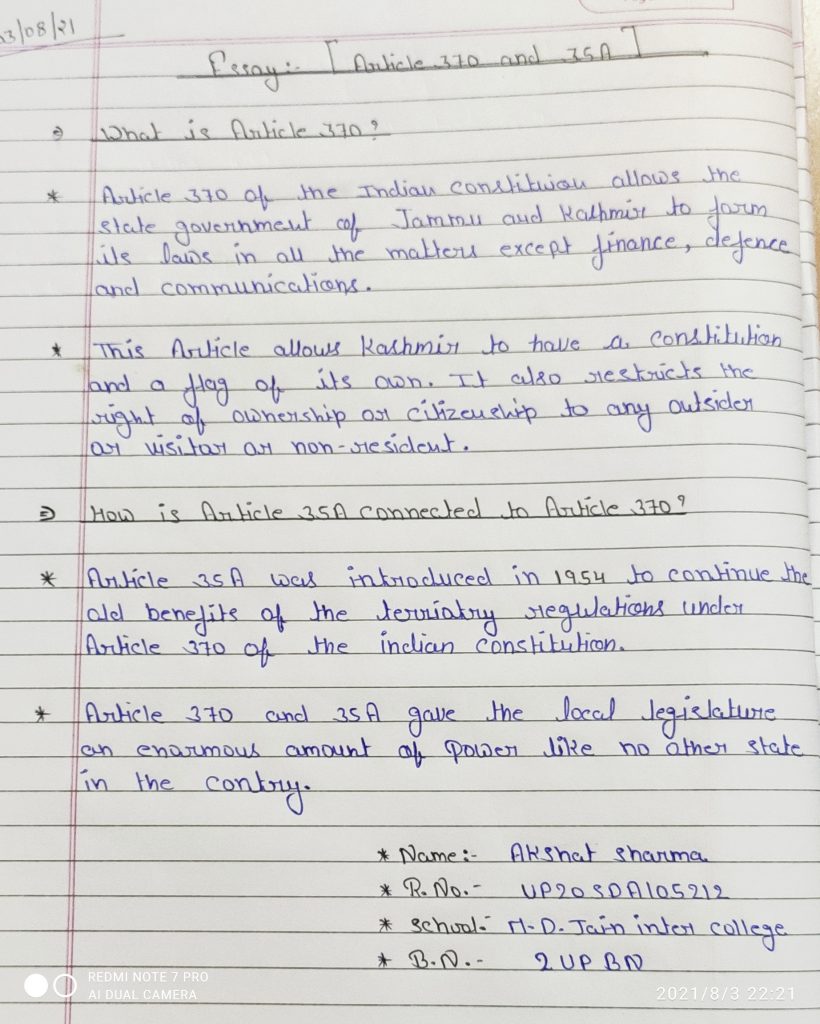 3/08/21
Essay:- [Article 370 and 35A]
⇒ What is Article 370?
* Article 370 of the Indian constituiou allows the
state government of Jammu and Kashmir to form
its laws in all the matters except finance, defence
and communications.
* This Article allows Kashmir to have a constitution
and a flag of its own. It also restricts the
right of ownership or citizenship to any outsider
or visitar or non-resident.
⇒ How is Article 35A connected to Article 370?
* Article 35A was introduced in 1954 to continue the
old benefits of the terriatry regulations under
Article 370 of the indian constitution.
* Article 370 and 35A gave the local legislature
an enarmous amount of power like no other state
in the contry.
* Name:- Akshat sharma
* R.No.- UP20SDA105212
* School:- M.D. Jain inter college
* B.N.- 2 UP BN
REDMI NOTE 7 PRO
AI DUAL CAMERA
2021/8/3 22:21